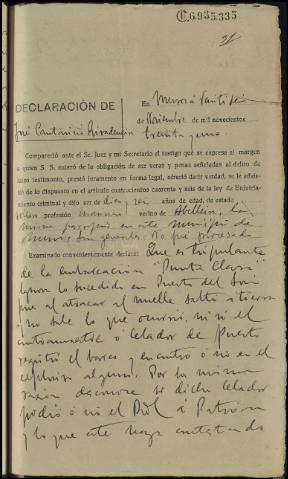 C.6935.335
DECLARACIÓN DE
José
En Muros á
de Noviembre de mil novecientos
treinta y uno
Compareció ante el Sr. Juez y mi Secretario el testigo que se expresa al margen
a quien S. S. enteró de la obligación de ser veraz y penas señaladas al delito de
falso testimonio, prestó juramento en forma legal, ofreció decir verdad, se le advirtió
de lo dispuesto en el artículo cuatrocientos cuarenta y seis de la ley de Enjuiciamiento
criminal y dijo ser de años de edad, de estado
soltero profesión marinero vecino de Abelleira,
en este municipio de
Muros, sin generales. No fué procesado
Examinado convenientemente declara: Que es tripulante
de la embarcación "Punta Clara"
ignora lo sucedido en Puerto del Son
que al atracar al muelle saltó a tierra
no sabe lo que ocurrió, ni si el
contramaestre ó Celador de Puerto
registró el barco y encontró ó no en el
explosivo alguno. Por la misma
razón desconoce si dicho Celador
pidió ó no el Rol al Patrón
y lo que este haya contestado